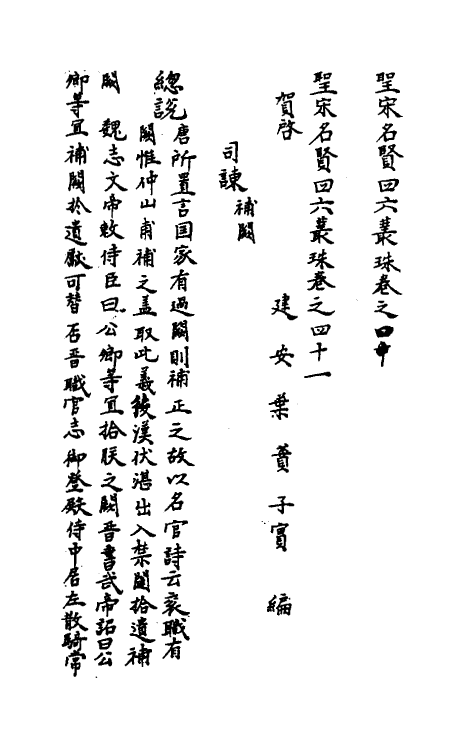 聖宋名賢四六叢珠卷之四十
聖宋名賢四六叢珠卷之四十一
建安葉蕡子實編
賀啓
司諫補闕
總說唐所置言国家有過闕則補正之故以名官詩云衮職有
闕惟仲山甫補之盖取此義後漢伏湛出入禁闥拾遺補
闕魏志文帝敕侍臣曰公卿等宜拾朕之闕晋書武帝詔曰公
卿等宜補闕於遺獻可替否晋職官志御登殿侍中居左散騎常